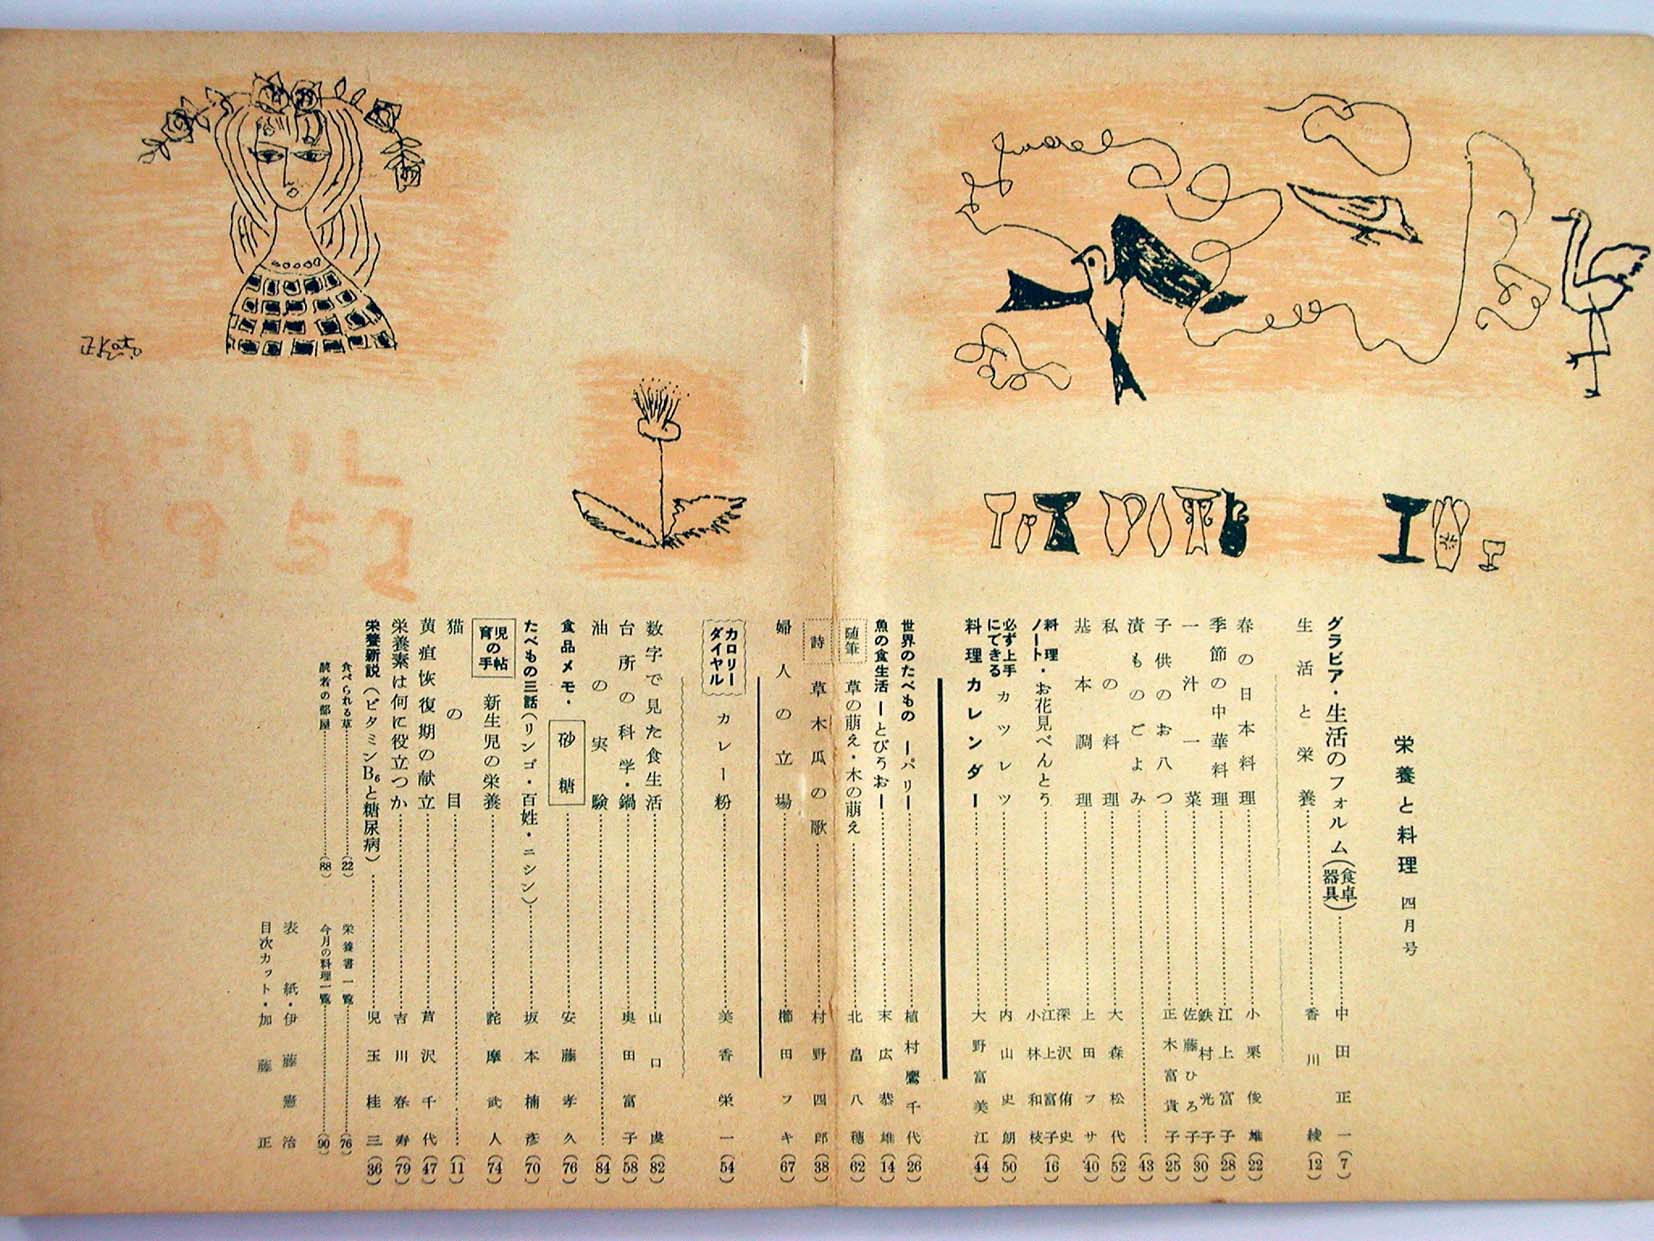 栄養と料理 四月号
グラビア・生活のフォルム(食卓器具)……中田正一(7)
生活と栄養……香川綾(12)
春の日本料理……小栗俊雄(22)
季節の中華料理……江上富子(28)
一汁一菜……鉄村光子 佐藤ひろ子(30)
子供のお八つ……正木富貴子(25)
漬ものごよみ……(43)
私の料理……大森松代(52)
基本調理……上田フサ(40)
料理ノート・お花見べんとう……深沢侑史 江上富子 小林和枝(16)
必ず上手にできる カツレツ……内山史朗(50)
料理カレンダー……大野富美江(44)
世界のたべもの ーパリー……植村鷹千代(26)
魚の食生活 ーとびうおー……末広恭雄(14)
随筆 草の萌え・木の萌え……北畠八穂(62)
詩 草木瓜の歌……村野四郎(38)
婦人の立場……櫛田フキ(67)
カロリーダイヤル カレー粉……美香栄一(54)
数字で見た食生活……山口虔(82)
台所の科学・鍋……奥田富子(58)
油の実験……(84)
食品メモ・砂糖……安藤孝久(76)
たべもの三話(リンゴ・百姓・ニシン)……坂本楠彦(70)
育児の手帖 新生児の栄養……詫摩武人(74)
猫の目……(11)
黄疸恢復期の献立……芦沢千代(47)
栄養素は何に役立つか……吉川春寿(79)
栄養新説(ビタミンB6と糖尿病)……児玉桂三(36)
食べられる草……(22)
読者の部屋……(88)
栄養書一覧……(76)
今月の料理一覧……(90)
表紙・伊藤憲治
目次カット・加藤正
Z.Kato
APRIL
1952